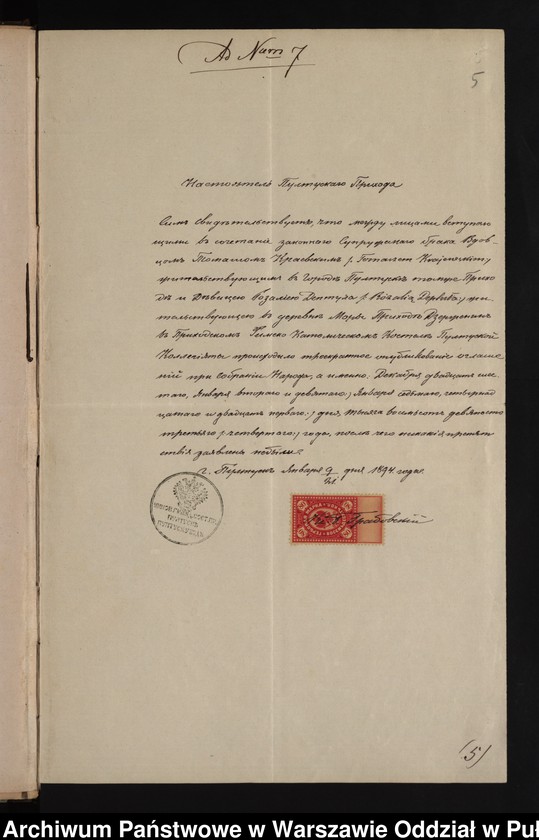 Ad Num 7
5
Настоятель Пултускаго Прихода
Симъ свидѣтельствуетъ, что между лицами вступаю-
щими въ сочетанiе законнаго Супружескаго брака Вдов-
цомъ Томашомъ Краевскимъ /: Tomasz Krajewski:/
жительствующимъ въ Городѣ Пултускъ томже Прихо
дѣ и Дѣвицею Розалiею Дептула /: Rozalia Deptuła:/ жи-
тельствующею въ деревни Приходѣ
въ Приходскомъ Римско Католическомъ Костелѣ Пултуской
Коллегiятѣ происходило троекратное опубликованiе оглаше
нiй при собранiи Народа, а именно: Декабря двадцать шес
таго, Января втораго и девятаго /: Января седьмаго, четырнад
цатаго и двадцать перваго:/ дня, тысяча восемьсотъ девяносто
третьяго /: четвертаго:/ года, послѣ чего никакiя препят
ствiя заявлены небыли.
г. Пултускъ Января 9/21 дня 1894 года.
(5)
Archiwum Państwowe w Warszawie Oddział w Puł